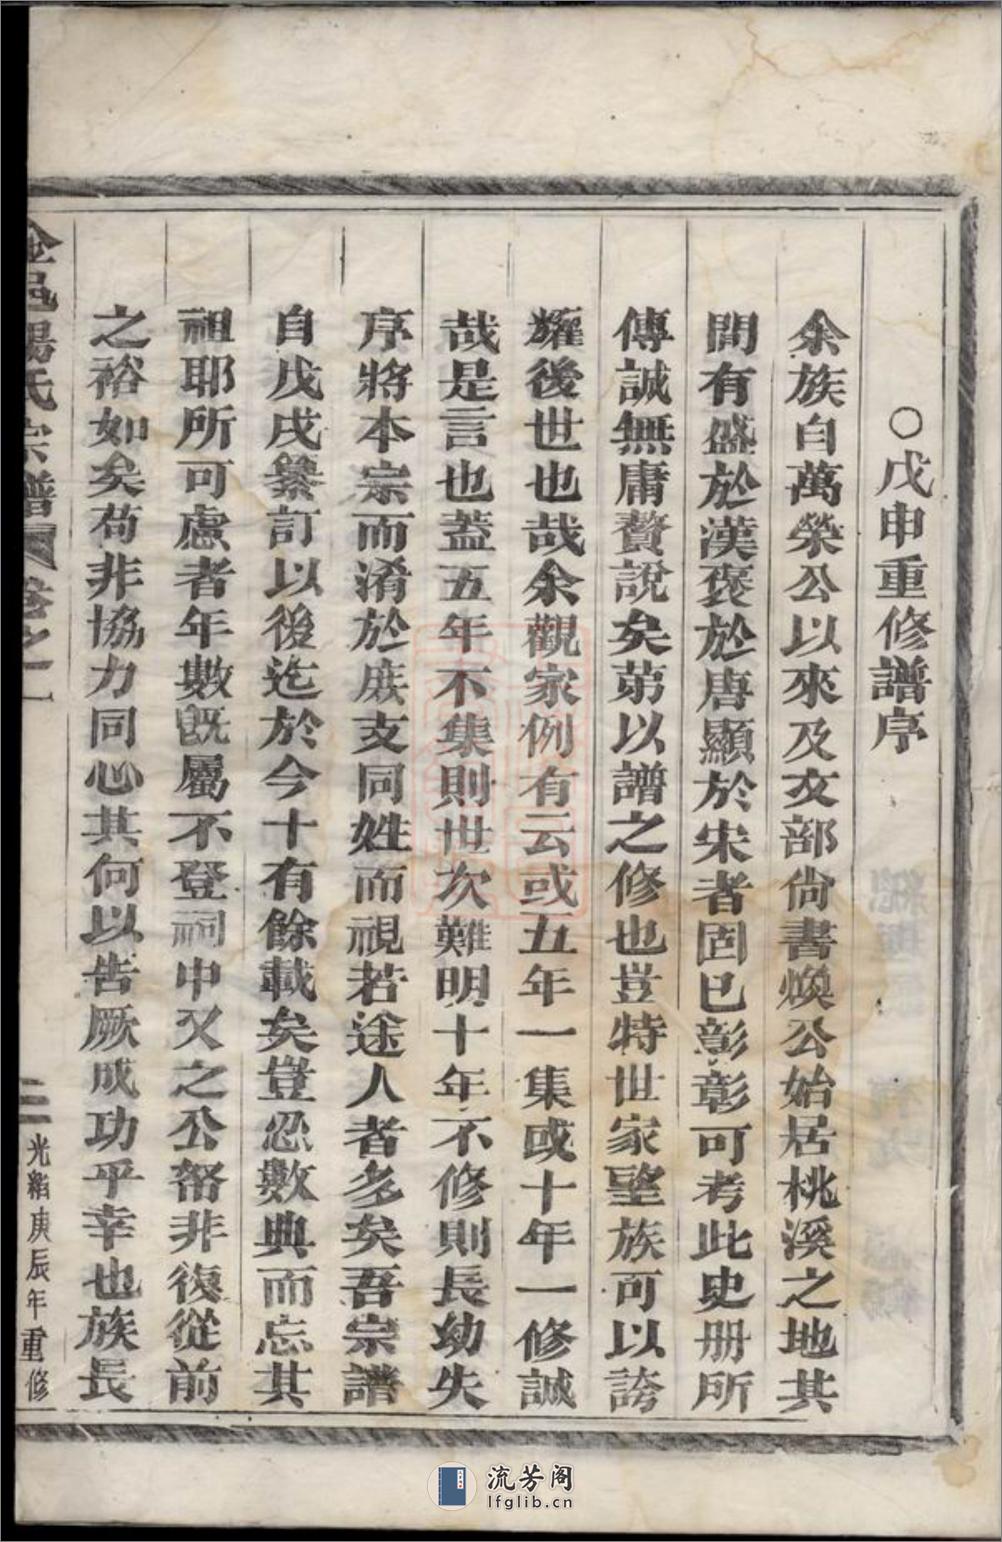 ○戊申重修譜序
余族自萬榮公以來及文部尚書煥公始居桃溪之地其
間有盛於漢褒於唐顯於宋者固已彰彰可考此史册所
傳誠無庸贅說矣苐以譜之修也豈特世家望族可以誇
耀後世也哉余觀家例有云或五年一集或十年一修誠
哉是言也葢五年不集則世次難明十年不修則長幼失
序將本宗而淆於庶支同姓而視若途人者多矣吾宗譜
自戊戌纂訂以後迄於今十有餘載矣豈忍數典而忘其
祖耶所可慮者年數既屬不登祠中又之公帑非復從前
之裕如矣苟非協力同心其何以告厥成功乎幸也族長
金邑楊氏宗譜 卷之一
二 光緒庚辰年重修
流芳阁
lfglib.cn